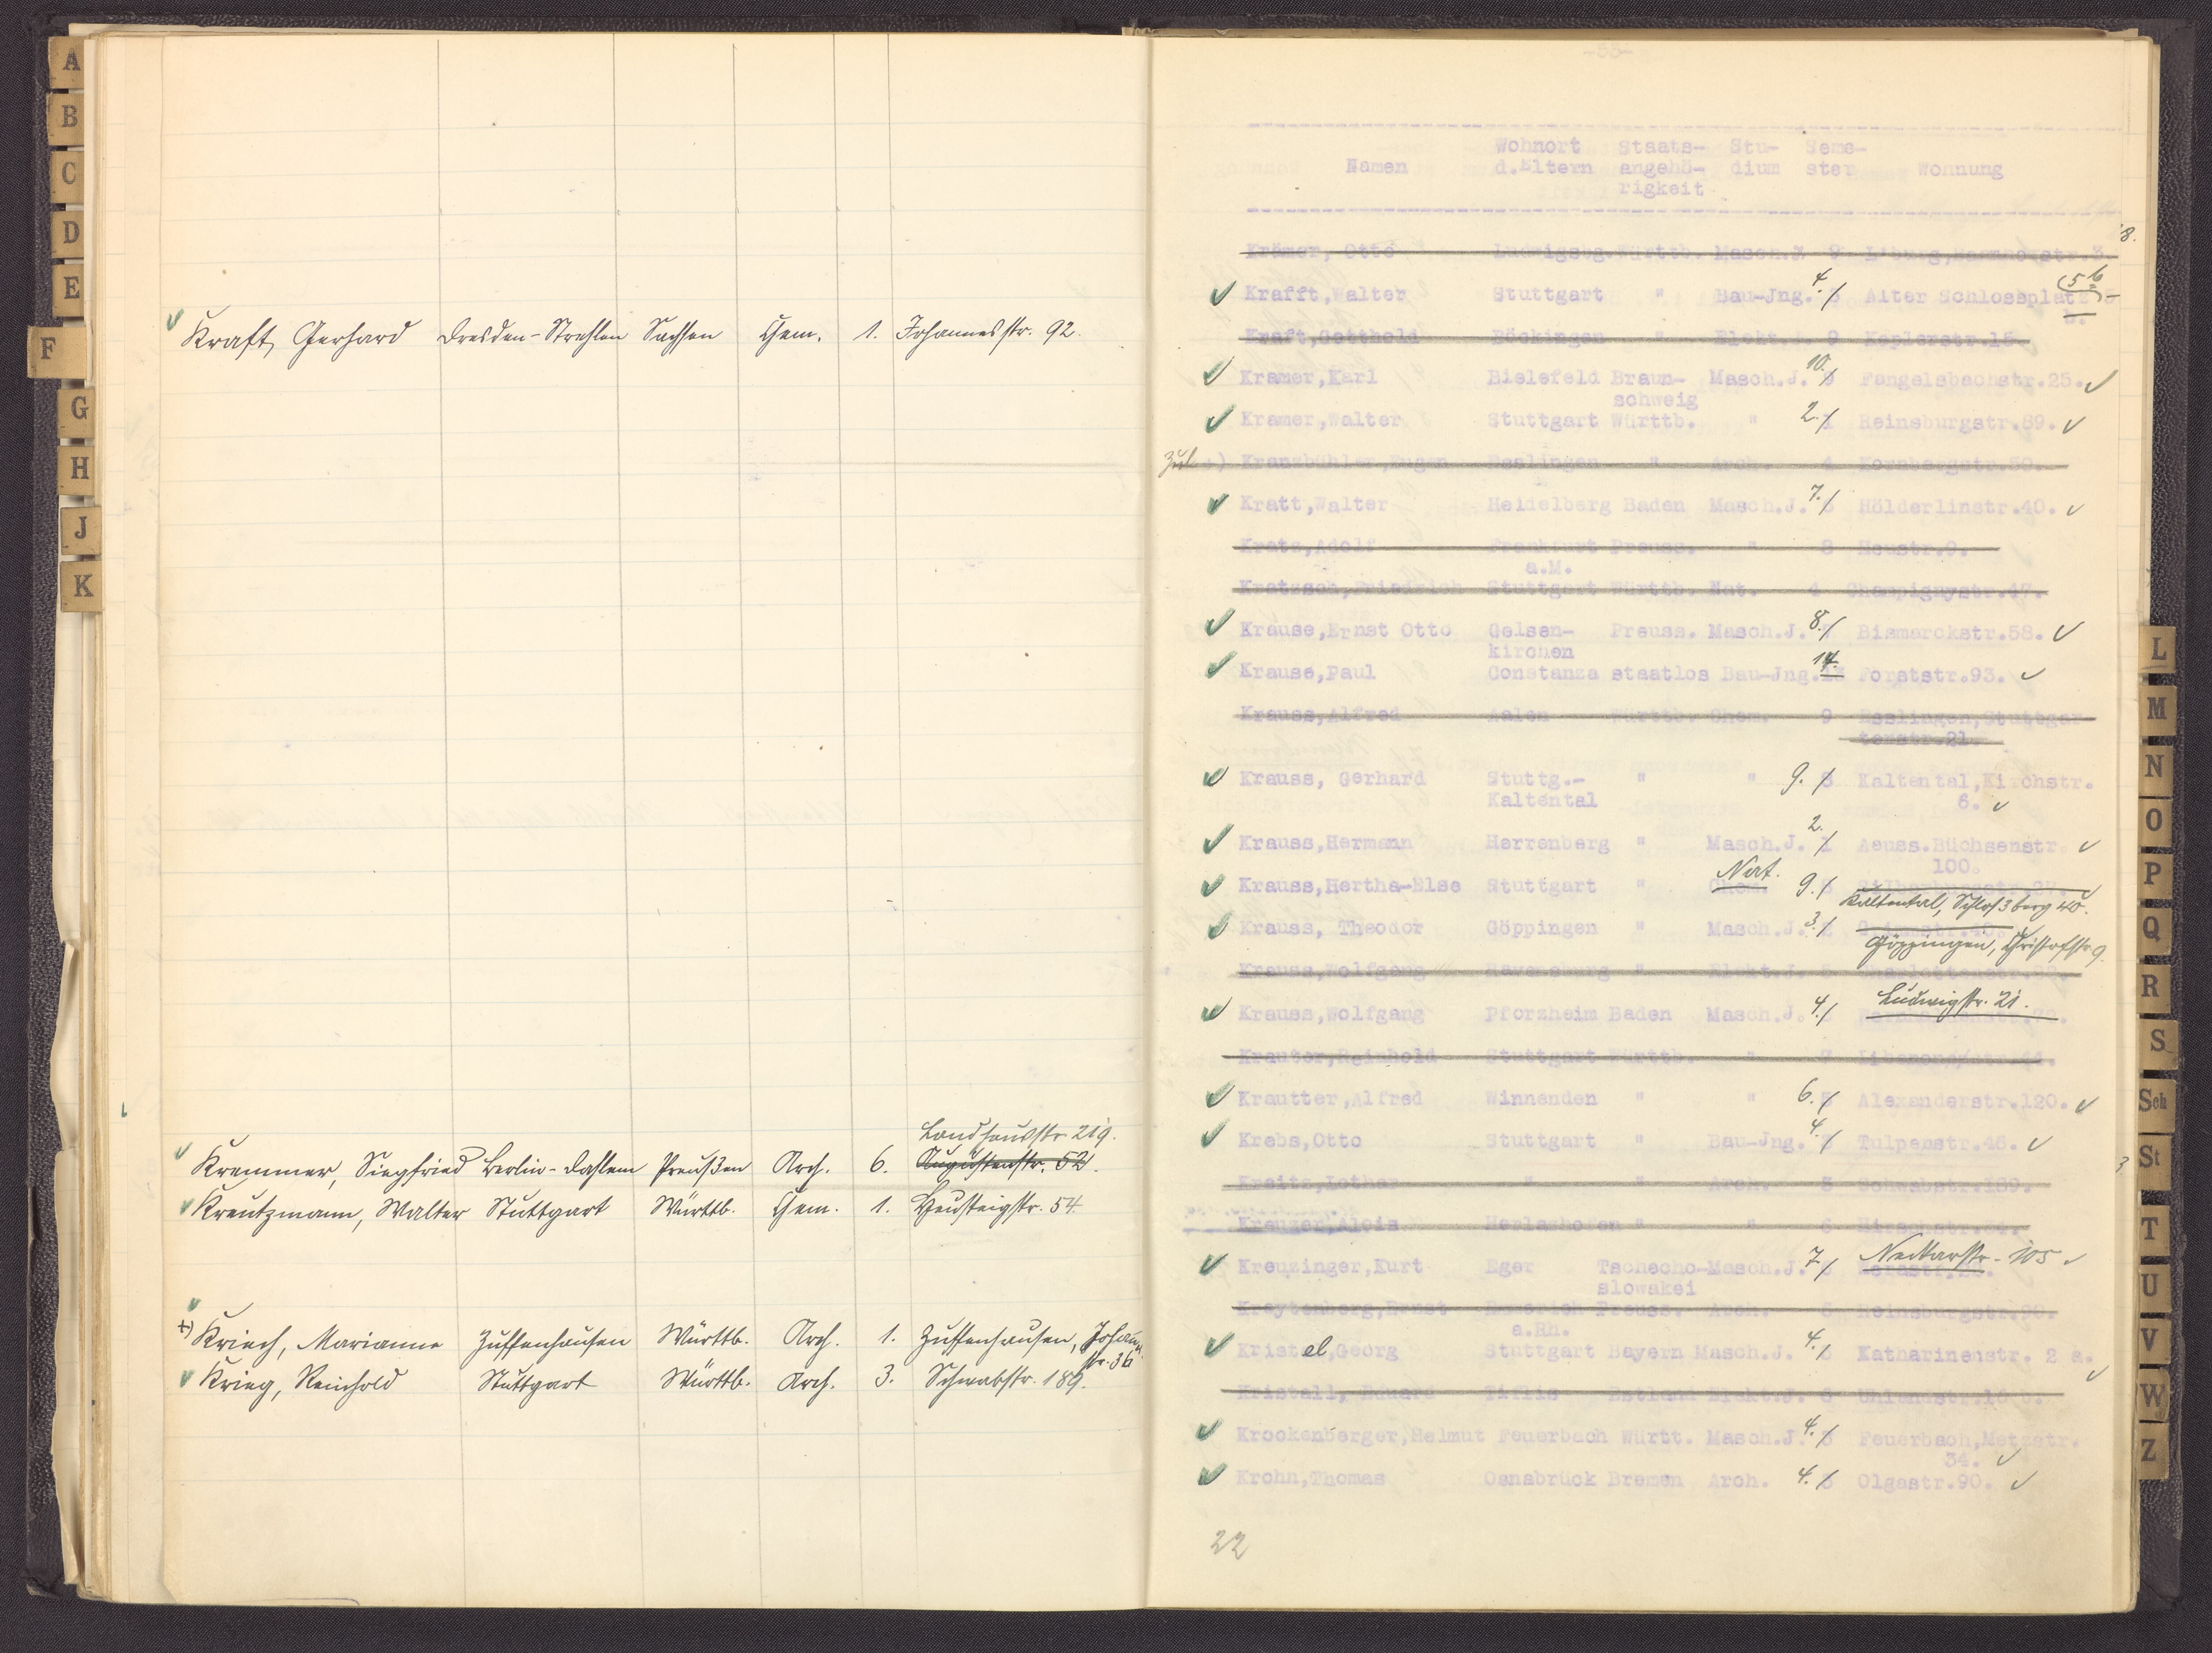 A
B
C
D
E
F
G
H
J
K
Kraft, Gerhard Dresden-Strehlen Sachsen Chem. 1. Johannesstr. 92.
Landhausstr. 219.
Krammer, Siegfried Berlin-Dahlem Preußen Arch. 6. Augustenstr. 52.
Kreutzmann, Walter Stuttgart Württb. Chem. 1. Heusteigstr. 54
+) Kriech, Marianne Zuffenhausen Württb. Arch. 1. Zuffenhausen, Johann.
str. 36
Krieg, Reinhold Stuttgart Württb. Arch. 3. Schwabstr. 189.
-53-
Wohnort Staats- Stu- Seme-
Namen d.Eltern angehö- dium ster Wohnung
rigkeit
Krömer, Otto Ludwigsbg. Württb. Masch.J. 9
Krafft,Walter Stuttgart " Bau-Jng. 4. Alter Schlossplatz
Kraft,Gotthold Böckingen " Elekt. 9 Keplerstr.15
Kramer,Karl Bielefeld Braun- Masch.J. 10. 9 Fangelsbachstr.25.
schweig
Kramer,Walter Stuttgart Württb. " 2. 1 Reinsburgstr.89.
Kranzbühler,Eugen Esslingen " Arch. 4
Kratt,Walter Heidelberg Baden Masch.J. 7. Hölderlinstr.40.
Kratz,Adolf Frankfurt Preuss. " 8 Heustr.9.
a.M.
Kratzsch,Friedrich Stuttgart Württb. Nat. 4 Champignystr.47.
Krause,Ernst Otto Gelsen- Preuss. Masch.J. 8. Bismarckstr.58.
kirchen
Krause,Paul Constanza staatlos Bau-Jng. 14. Forststr.93.
Krauss,Alfred Aalen Württb. Chem. 9 Esslingen,Stuttgar-
terstr.21.
Krauss, Gerhard Stuttg.- " " 9. 8 Kaltental,Kirchstr.
Kaltental 6.
Krauss,Hermann Herrenberg " Masch.J. 2. 1 Aeuss.Büchsenstr.
100.
Krauss,Hertha-Else Stuttgart " Nat. 9.
Kaltental, Schloßberg 40.
Krauss, Theodor Göppingen " Masch.J. 3. 2
Göppingen, Christofstr. 9.
Krauss,Wolfgang Ravensburg " Elekt.J.
Ludwigstr. 21.
Krauss,Wolfgang Pforzheim Baden Masch.J. 4.
Krauter,Reinhold Stuttgart Württb. " 7
Krautter,Alfred Winnenden " " 6. 5 Alexanderstr.120.
Krebs,Otto Stuttgart " Bau-Jng. 4. Tulpenstr.46.
Kreitz,Lothar " " Arch. 3 Schwabstr.189.
Kreuzer,Alois " " 6 Hirschstr.
Kreuzinger,Kurt Eger Tschecho-Masch.J. 7. Neckarstr. 105
slowakei
Kreytenberg,Ernst Emmerich Preuss. Arch. Reinsburgstr.
a.Rh.
Kristel,Georg Stuttgart Bayern Masch.J. 4. 3 Katharinenstr. 2 a.
Kristall, Eduard Tiflis Estland Elekt.J. 8 Uhlandstr.
Krockenberger,Helmut Feuerbach Württ. Masch.J. 4. 3 Feuerbach,Metzstr.
34.
Krohn,Thomas Osnabrück Bremen Arch. 4. 3 Olgastr.90.
22
L
M
N
O
P
Q
R
S
Sch
St
T
U
V
W
Z